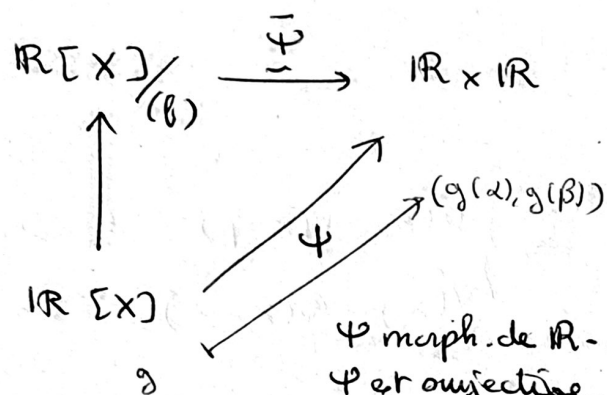 Ψ̄
ℝ[X]/(f) ~→ ℝ × ℝ
(g(α), g(β))
Ψ
ℝ[X]
Ψ morph. de ℝ-
g
Ψ est surjective